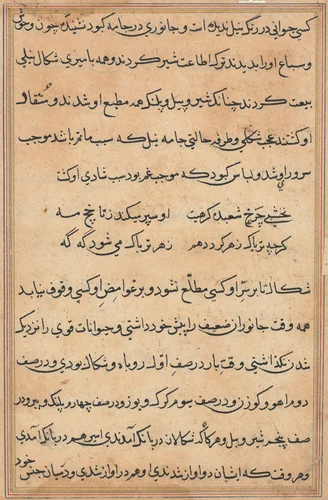 کسی جوانی در رنگ نیل ندیده است و جانوری در جامه کبود نشنیده چون وحوش
و سباع او را بدیدند ترک اطاعت شیر کردند و همه بامیری شکال نیلی
بیعت کردند چنانک شیر و پیل و پلنک همه مطیع او شدند و منقاد
او کشتند عجب شکلی و طرفه حالتی جامه نیل که سبب ماتم باشد موجب
سرور او شد و لباس کبود که موجب غم بود سبب شادی او کشت
نخشبی چرخ شعبده کرهیست او سپر میکند مه
کرچه تریاک زهر کردد هم زهر تریاک می شود که که
شکال تا بر سر او کسی مطلع نشود و بر غوامض او کسی وقوف نیابد
همه وقت جانوران ضعیف را پیش خود داشتی و حیوانات قوی را نزدیک
شدن نکذاشتی وقت بار در صف اول روباه و شکال بودی و در صف
دوم آهو و کوزن و در صف سوم کرک و یوز و در صف چهارم پلنک و ببر و در
صف پنجم شیر و پیل و هرکاه شکالان در بانک آمدندی او هم در بانک آمدی
و هر وقت که ایشان در آواز شدندی او هم در آواز شدی و در میان جنس خود